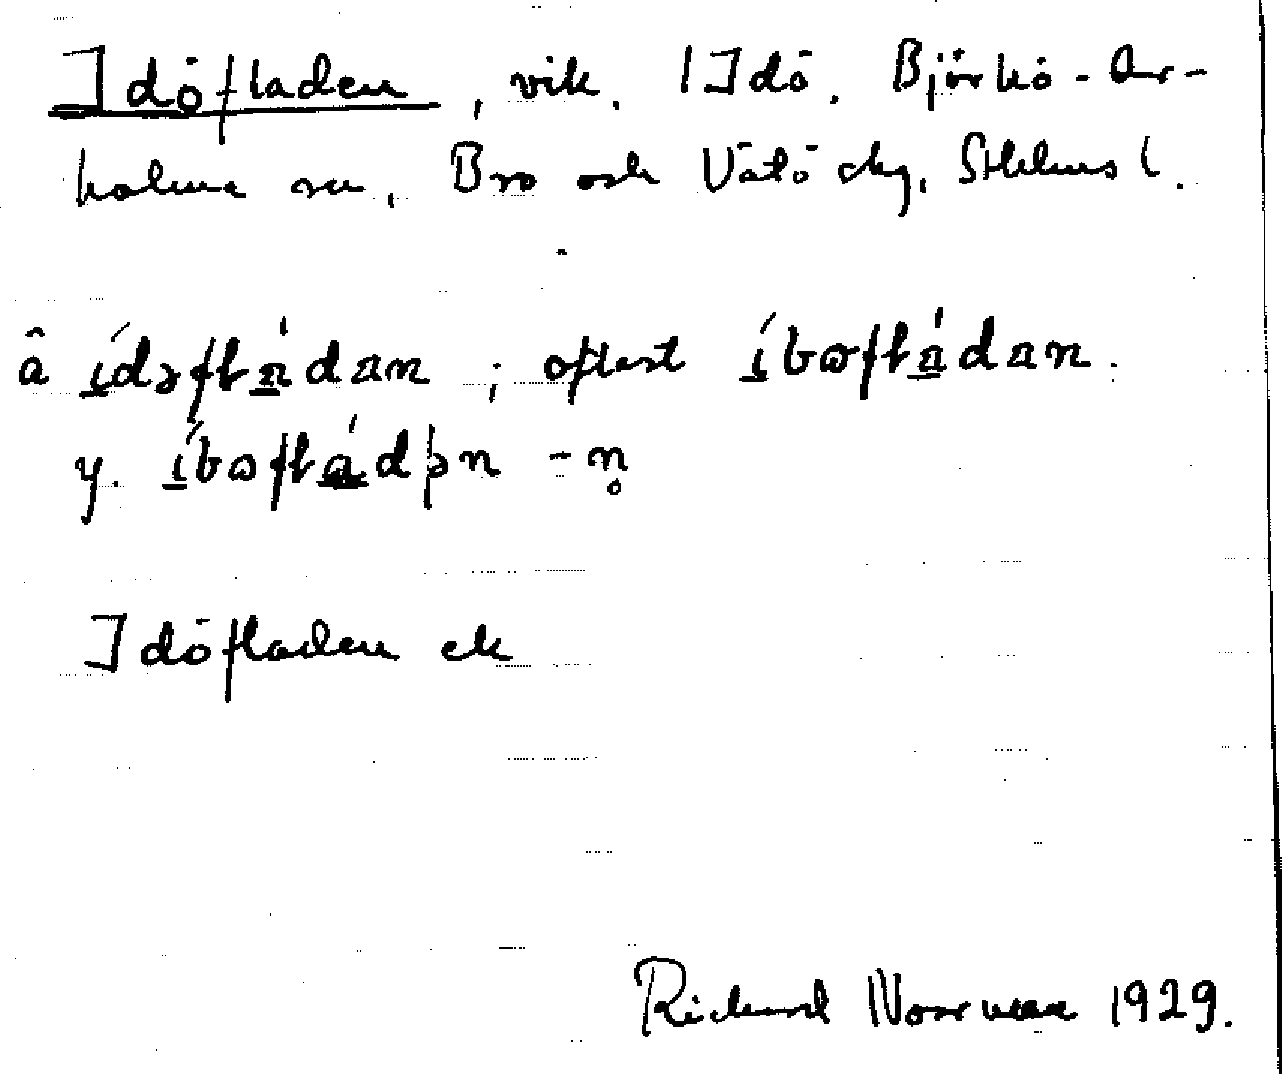 Idöfladen, vik, Idö, Björkö-Ar-
holma sn, Bro och Vätö skg, Sthlms l.
â ídəfládan ; oftast íbɷfládan.
y. íbɷfládþn -n̥
Idöfladen ek
Richard Norrman 1929.